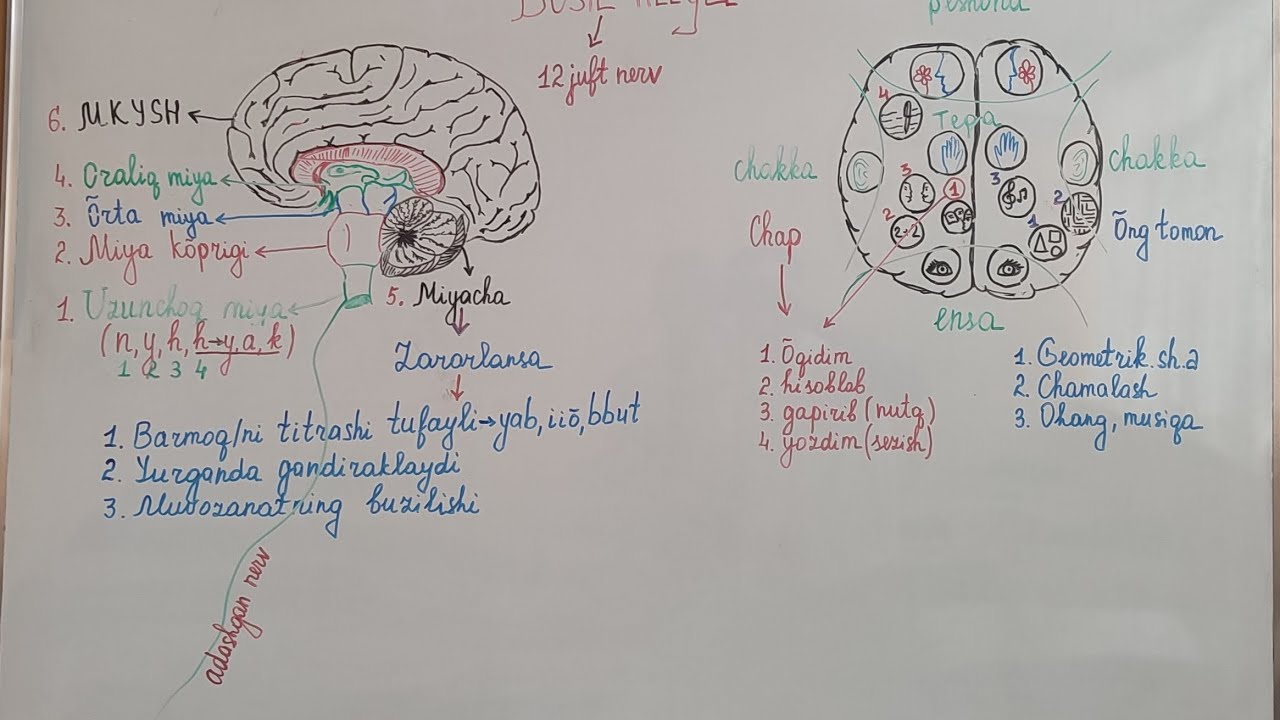 12 juft nerv
peshona
6. MKYSH
4. Oraliq miya
3. Õrta miya
2. Miya kõprigi
1. Uzunchoq miya
(n, y, h, h→y, a, k)
1 2 3 4
5. Miyacha
Zararlansa
1. Barmoq/ni titrashi tufayli→yab, iiõ, bbut
2. Yurganda gandiraklaydi
3. Muvozanatning buzilishi
adashgan nerv
4
тера
chakka
chakka
3
1
3
2
2+2
2
1
Chap
Õng tomon
ensa
1. Õqidim
2. hisoblab
3. gapirib (nutq)
4. yozdim (sezish)
1. Geometrik. sh. a
2. Chamalash
3. Ohang, musiqa